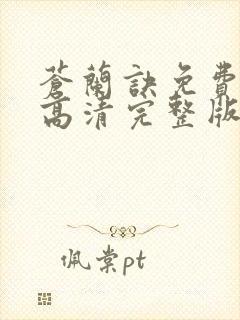 蒼蘭訣免費
高清完整版
佩棠pt